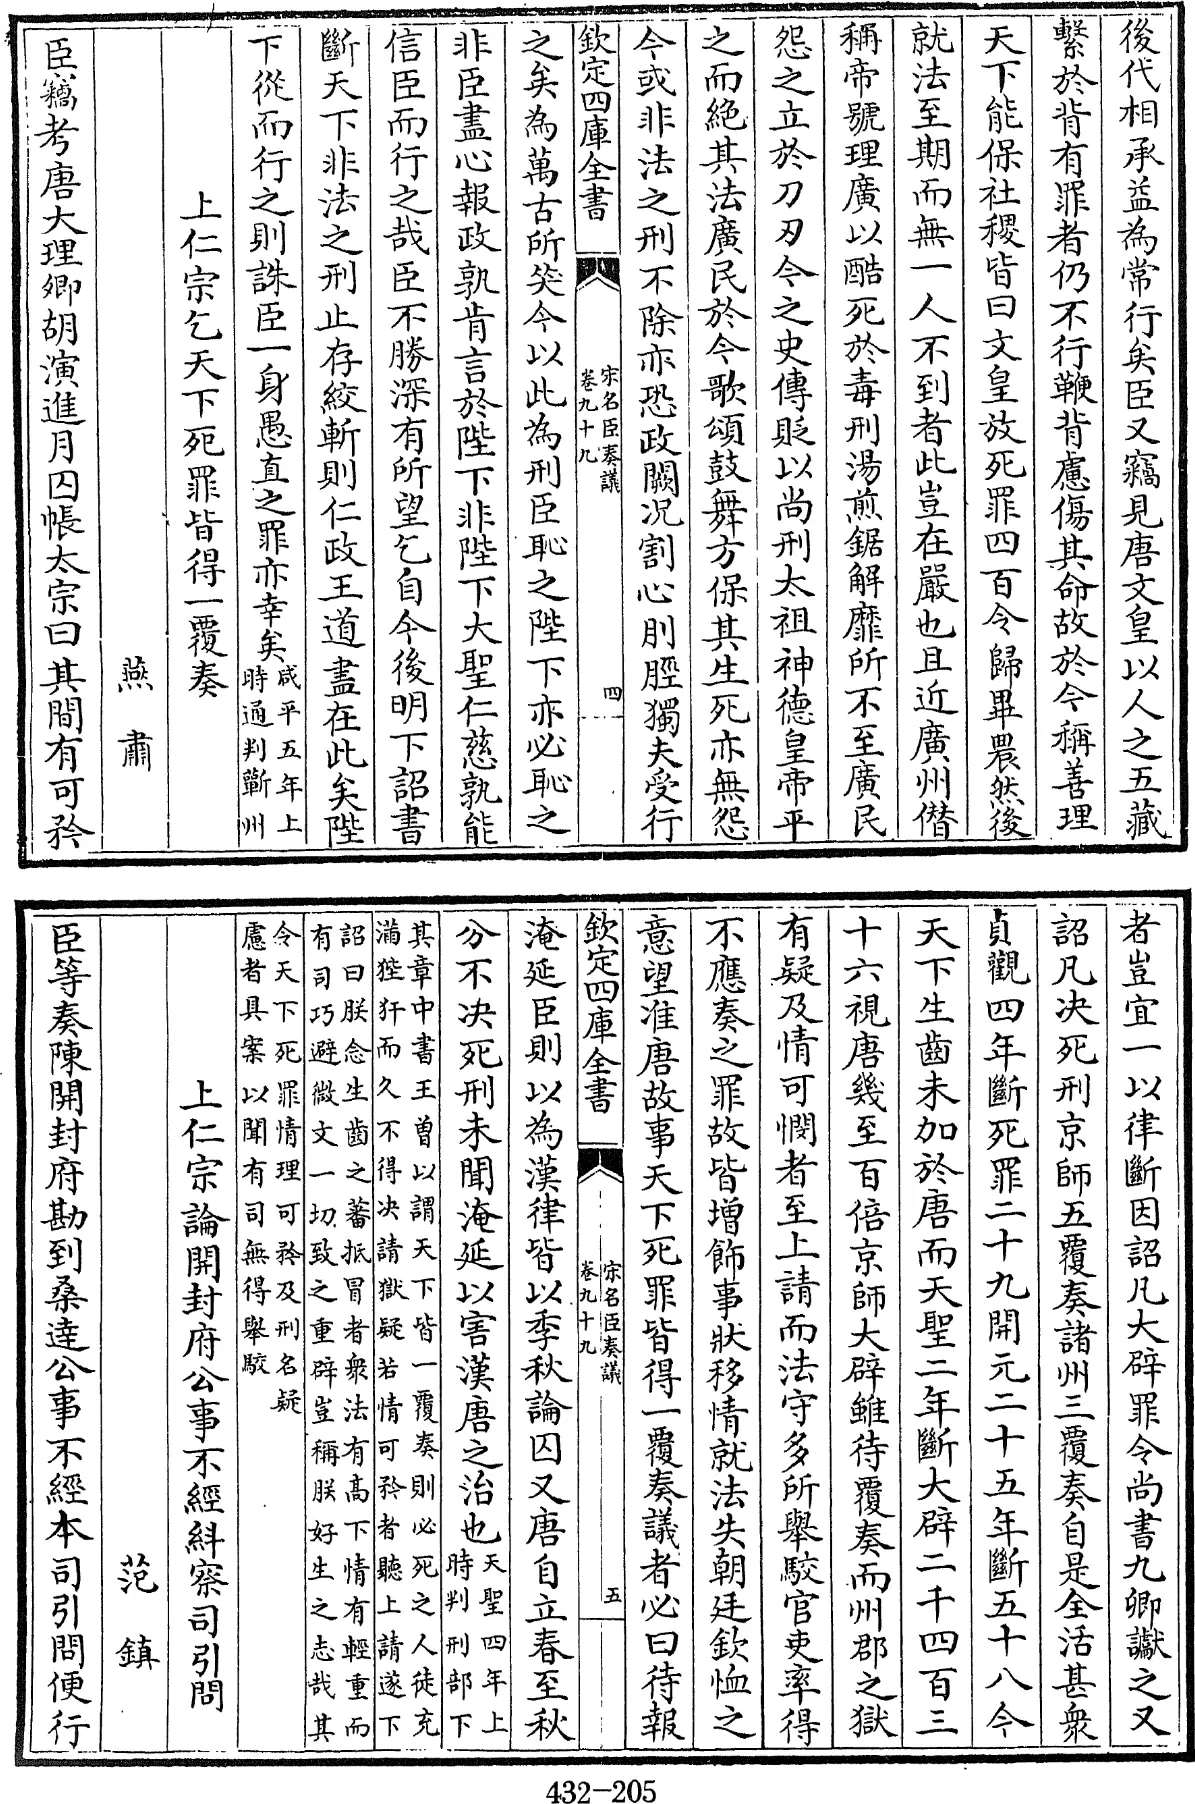 後代相承益為常行矣臣又竊見唐文皇以人之五藏
繫於背有罪者仍不行鞭背慮傷其命故於今稱善理
天下能保社稷皆曰文皇放死罪四百令歸畢農然後
就法至期而無一人不到者此豈在嚴也且近廣州僭
稱帝號理廣以酷死於毒刑湯煎鋸解靡所不至廣民
怨之立於刀刃今之史傳貶以尚刑太祖神德皇帝平
之而絶其法廣民於今歌頌鼓舞方保其生死亦無怨
今或非法之刑不除亦恐政闕况割心刖脛獨夫受行
欽定四庫全書
宋名臣奏議
卷九十九
四
之矣為萬古所笑今以此為刑臣恥之陛下亦必恥之
非臣盡心報政孰肯言於陛下非陛下大聖仁慈孰能
信臣而行之哉臣不勝深有所望乞自今後明下詔書
斷天下非法之刑止存絞斬則仁政王道盡在此矣陛
下從而行之則誅臣一身愚直之罪亦幸矣咸平五年上
時通判蘄州
上仁宗乞天下死罪皆得一覆奏
燕肅
臣竊考唐大理卿胡演進月囚帳太宗曰其間有可矜
者豈宜一以律斷因詔凡大辟罪令尚書九卿讞之又
詔凡決死刑京師五覆奏諸州三覆奏自是全活甚衆
貞觀四年斷死罪二十九開元二十五年斷五十八今
天下生齒未加於唐而天聖二年斷大辟二千四百三
十六視唐幾至百倍京師大辟雖待覆奏而州郡之獄
有疑及情可憫者至上請而法守多所舉駮官吏率得
不應奏之罪故皆增飾事狀移情就法失朝廷欽恤之
意望准唐故事天下死罪皆得一覆奏議者必曰待報
欽定四庫全書
宋名臣奏議
卷九十九
五
淹延臣則以為漢律皆以季秋論囚又唐自立春至秋
分不决死刑未聞淹延以害漢唐之治也天聖四年上
時判刑部下
其章中書王曾以謂天下皆一覆奏則必死之人徒充
滿狴犴而久不得决請獄疑若情可矜者聽上請遂下
詔曰朕念生齒之蕃抵冒者衆法有高下情有輕重而
有司巧避微文一切致之重辟豈稱朕好生之志哉其
令天下死罪情理可矜及刑名疑
慮者具案以聞有司無得舉駮
上仁宗論開封府公事不經糾察司引問
范鎮
臣等奏陳開封府勘到桑逵公事不經本司引問便行
432-205